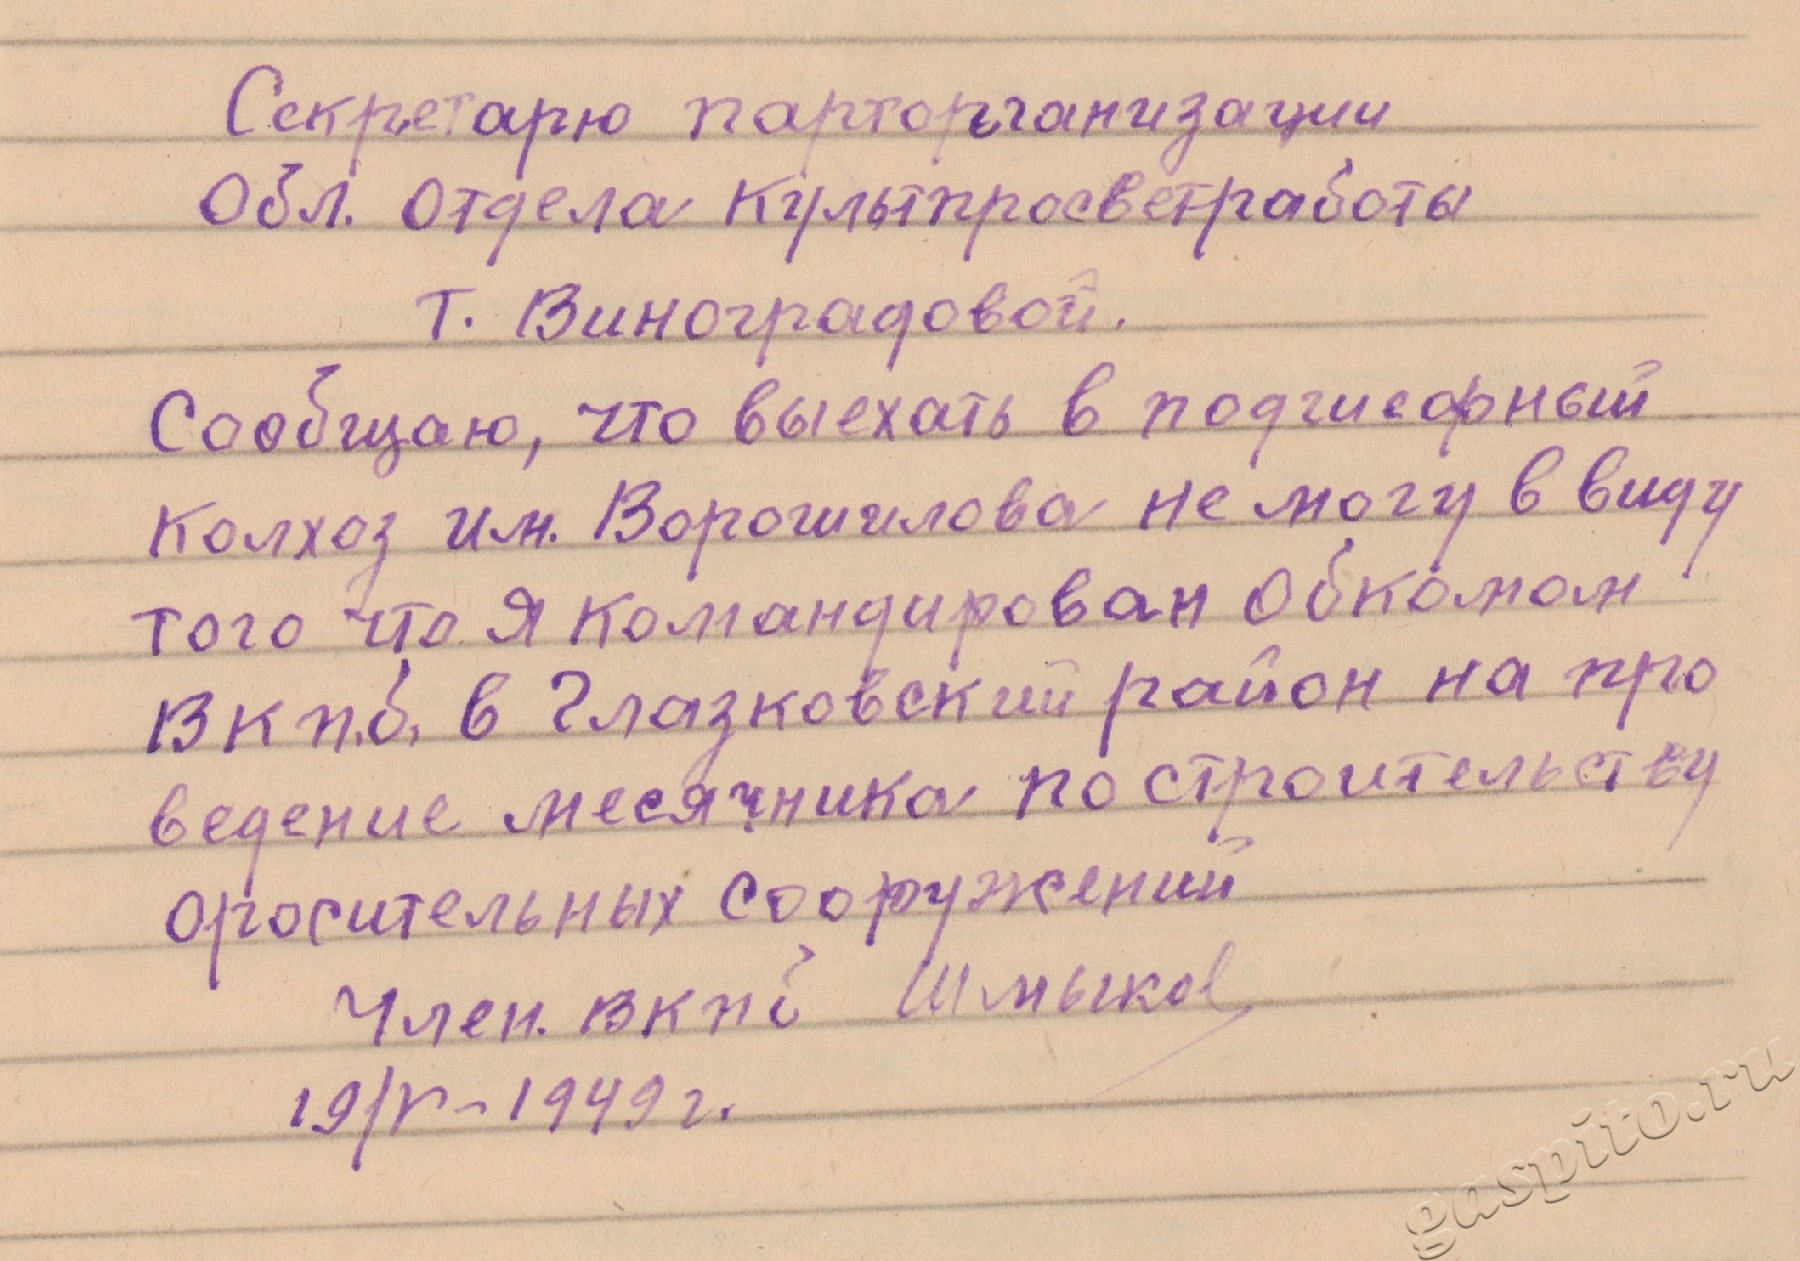 Секретарю парторганизации
Обл. Отдела Культпросветработы
т. Виноградовой.
Сообщаю, что выехать в подшефный
Колхоз им. Ворошилова не могу в виду
того что я командирован Обкомом
ВКП.б. в Глазковский район на про
ведение месячника по строительству
оросительных сооружений
Член. ВКПб Шмыков
19/V-1949 г.
gaspito.ru